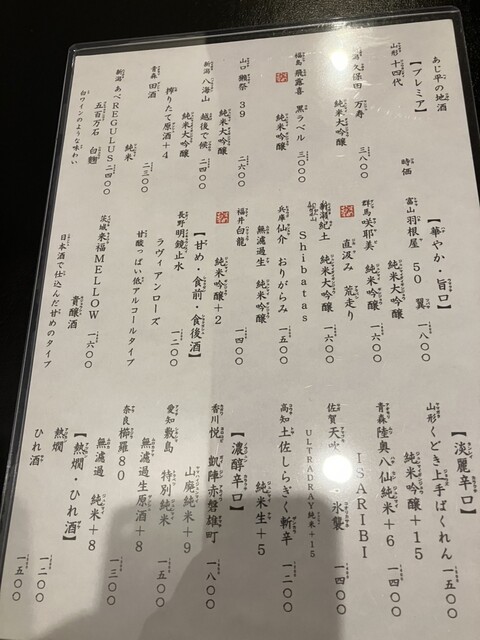 あじ平の地酒
【プレミア】
山形 十四代 時価
久保田 万寿
純米大吟醸 三八〇〇
福島 飛露喜 黒ラベル
純米吟醸 三〇〇〇
山口 獺祭 39
純米大吟醸 二六〇〇
新潟 八海山 越後で候
純米大吟醸 二四〇〇
青森 田酒
搾りたて原酒+4
純米 二三〇〇
新潟 あべREGULUS 二四〇〇
五百万石 白麹
白ワインのような味わい
【華やか・旨口】
富山 羽根屋 50 翼 一八〇〇
純米大吟醸
群馬 咲耶美 純米吟醸
直汲み 荒走り 一六〇〇
紀土 純米大吟醸
Shibatas 一六〇〇
兵庫 仙介 おりがらみ
無濾過生 純米吟醸 一五〇〇
福井 白龍
純米吟醸+2 一四〇〇
【甘め・食前・食後酒】
長野 明鏡止水
ラヴィアンローズ 一二〇〇
甘酸っぱい低アルコールタイプ
茨城 来福MELLOW 一六〇〇
貴醸酒
日本酒で仕込んだ甘めのタイプ
【淡麗辛口】
山形 くどき上手ばくれん
純米吟醸+15 一五〇〇
青森 陸奥八仙 純米+6
ISARIBI 一四〇〇
佐賀 天吹 氷襲 一四〇〇
ULTRADRAY 純米+15
高知 土佐しらぎく 斬辛
純米生+5 一二〇〇
【濃醇辛口】
香川 悦 凱陣 赤磐雄町
山廃純米+9 一八〇〇
愛知 敷島 特別純米
無濾過生原酒+8 一五〇〇
奈良 櫛羅80
無濾過 純米+8 一三〇〇
【熱燗・ひれ酒】
熱燗 一二〇〇
ひれ酒 一五〇〇